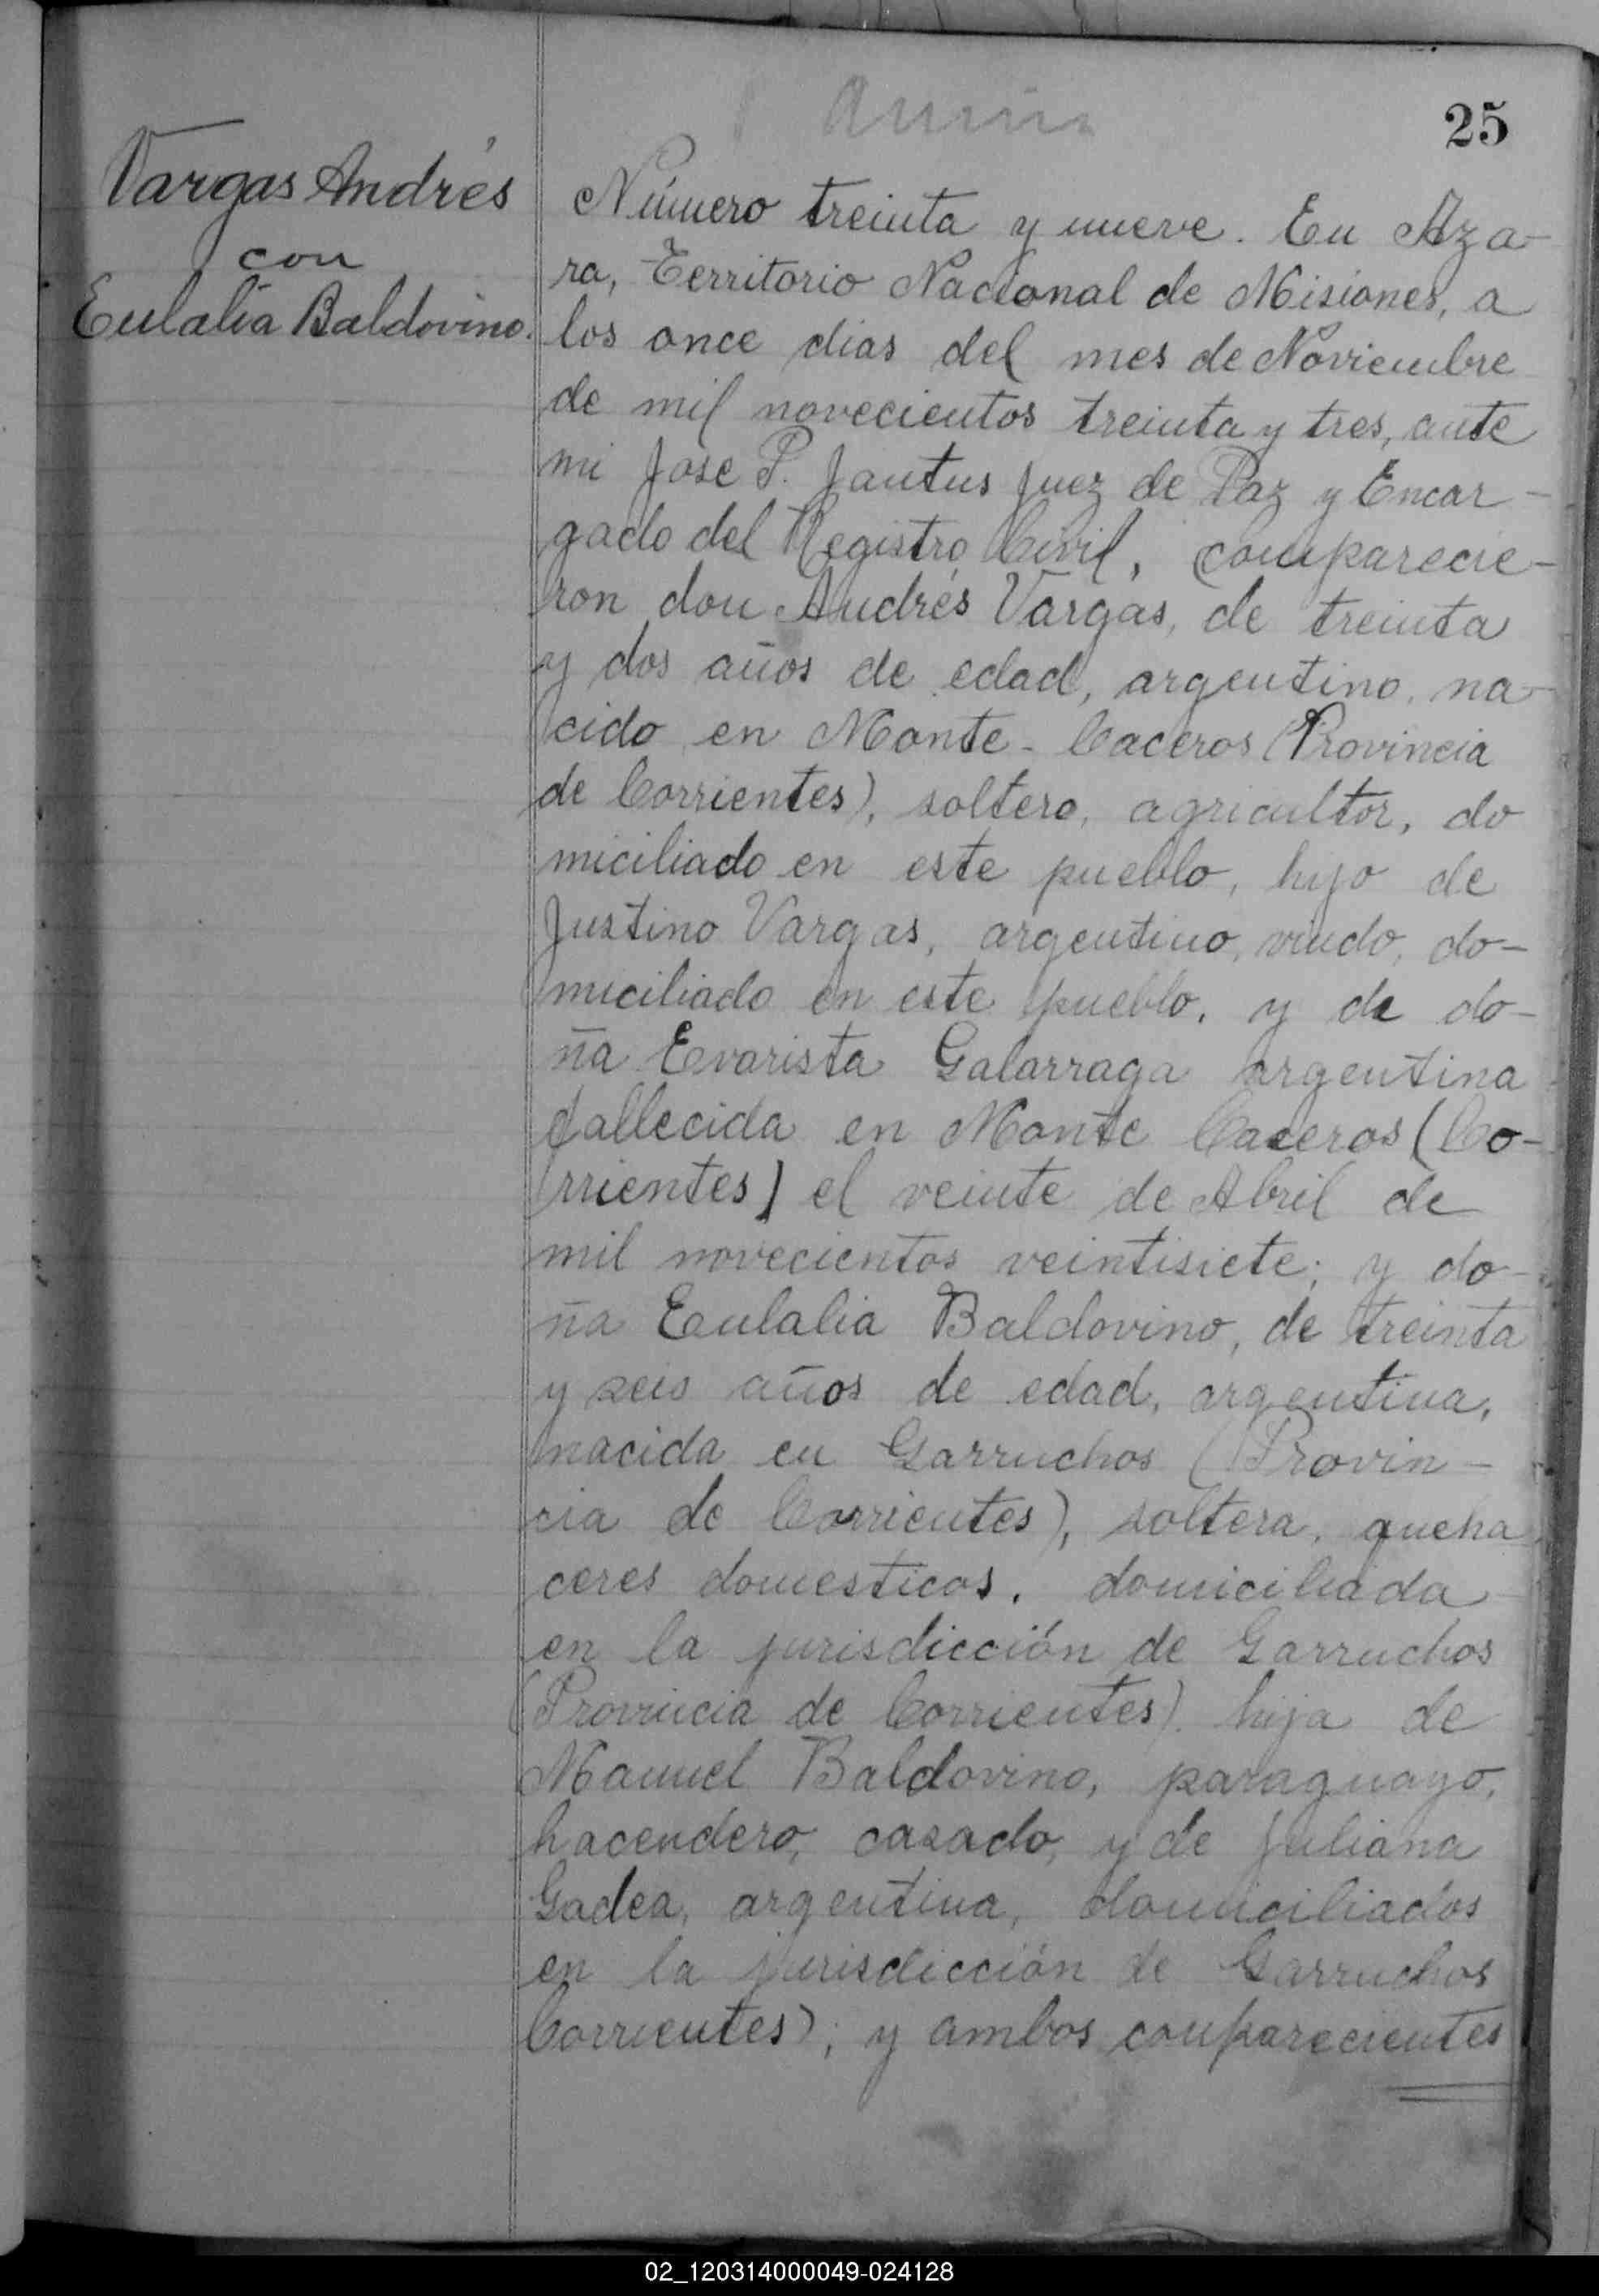 25
Vargas Andrés
con
Eulalia Baldovino.
Número treinta y nueve. En Aza-
ra, Territorio Nacional de Misiones, a
los once dias del mes de Noviembre
de mil novecientos treinta y tres, ante
mi Jose P. Jantus Juez de Paz y Encar-
gado del Registro Civil, comparecie-
ron don Andrés Vargas, de treinta
y dos años de edad, argentino, na-
cido en Monte-Caceros (Provincia
de Corrientes), soltero, agricultor, do
miciliado en este pueblo, hijo de
Justino Vargas, argentino, viudo, do-
miciliado en este pueblo, y de do-
ña Evarista Galarraga argentina
fallecida en Monte Caceros (Co-
rrientes) el veinte de Abril de
mil novecientos veintisiete; y do-
ña Eulalia Baldovino, de treinta
y seis años de edad, argentina,
nacida en Garruchos (Provin-
cia de Corrientes), soltera, queha
ceres domesticos, domiciliada
en la jurisdicción de Garruchos
(Provincia de Corrientes), hija de
Manuel Baldovino, paraguayo,
hacendero, casado, y de Juliana
Gadea, argentina, domiciliados
en la jurisdicción de Garruchos
Corrientes); y ambos comparecientes
02_120314000049-024128